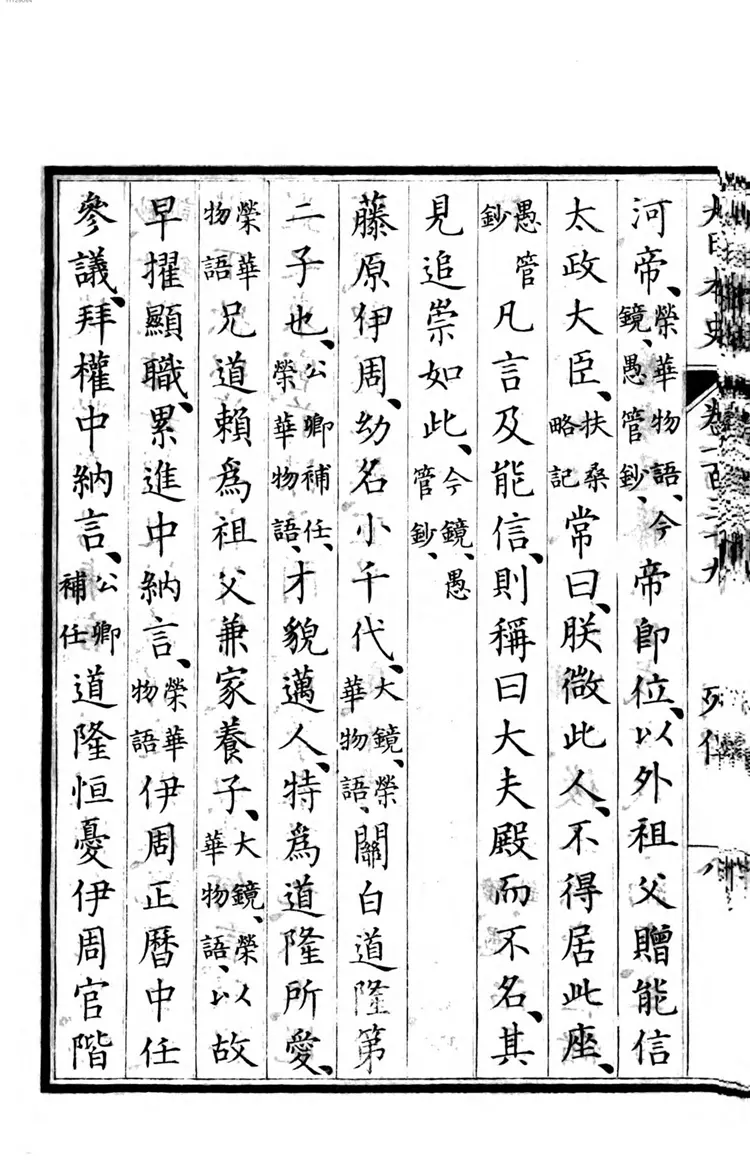 大日本史 卷一百三十九 列傳
河帝、榮華物語、鏡、愚管鈔、今帝卽位、以外祖父贈能信
太政大臣、扶桑略記常曰、朕微此人、不得居此座、
愚管鈔凡言及能信、則稱曰大夫殿而不名、其
見追崇如此、今鏡、愚管鈔、
藤原伊周、幼名小千代、大鏡、榮華物語、關白道隆第
二子也、公卿補任、榮華物語、才貌邁人、特爲道隆所愛、
榮華物語兄道賴爲祖父兼家養子、大鏡、榮華物語、以故
早擢顯職、累進中納言、榮華物語伊周正曆中任
參議、拜權中納言、公卿補任道隆恒憂伊周官階